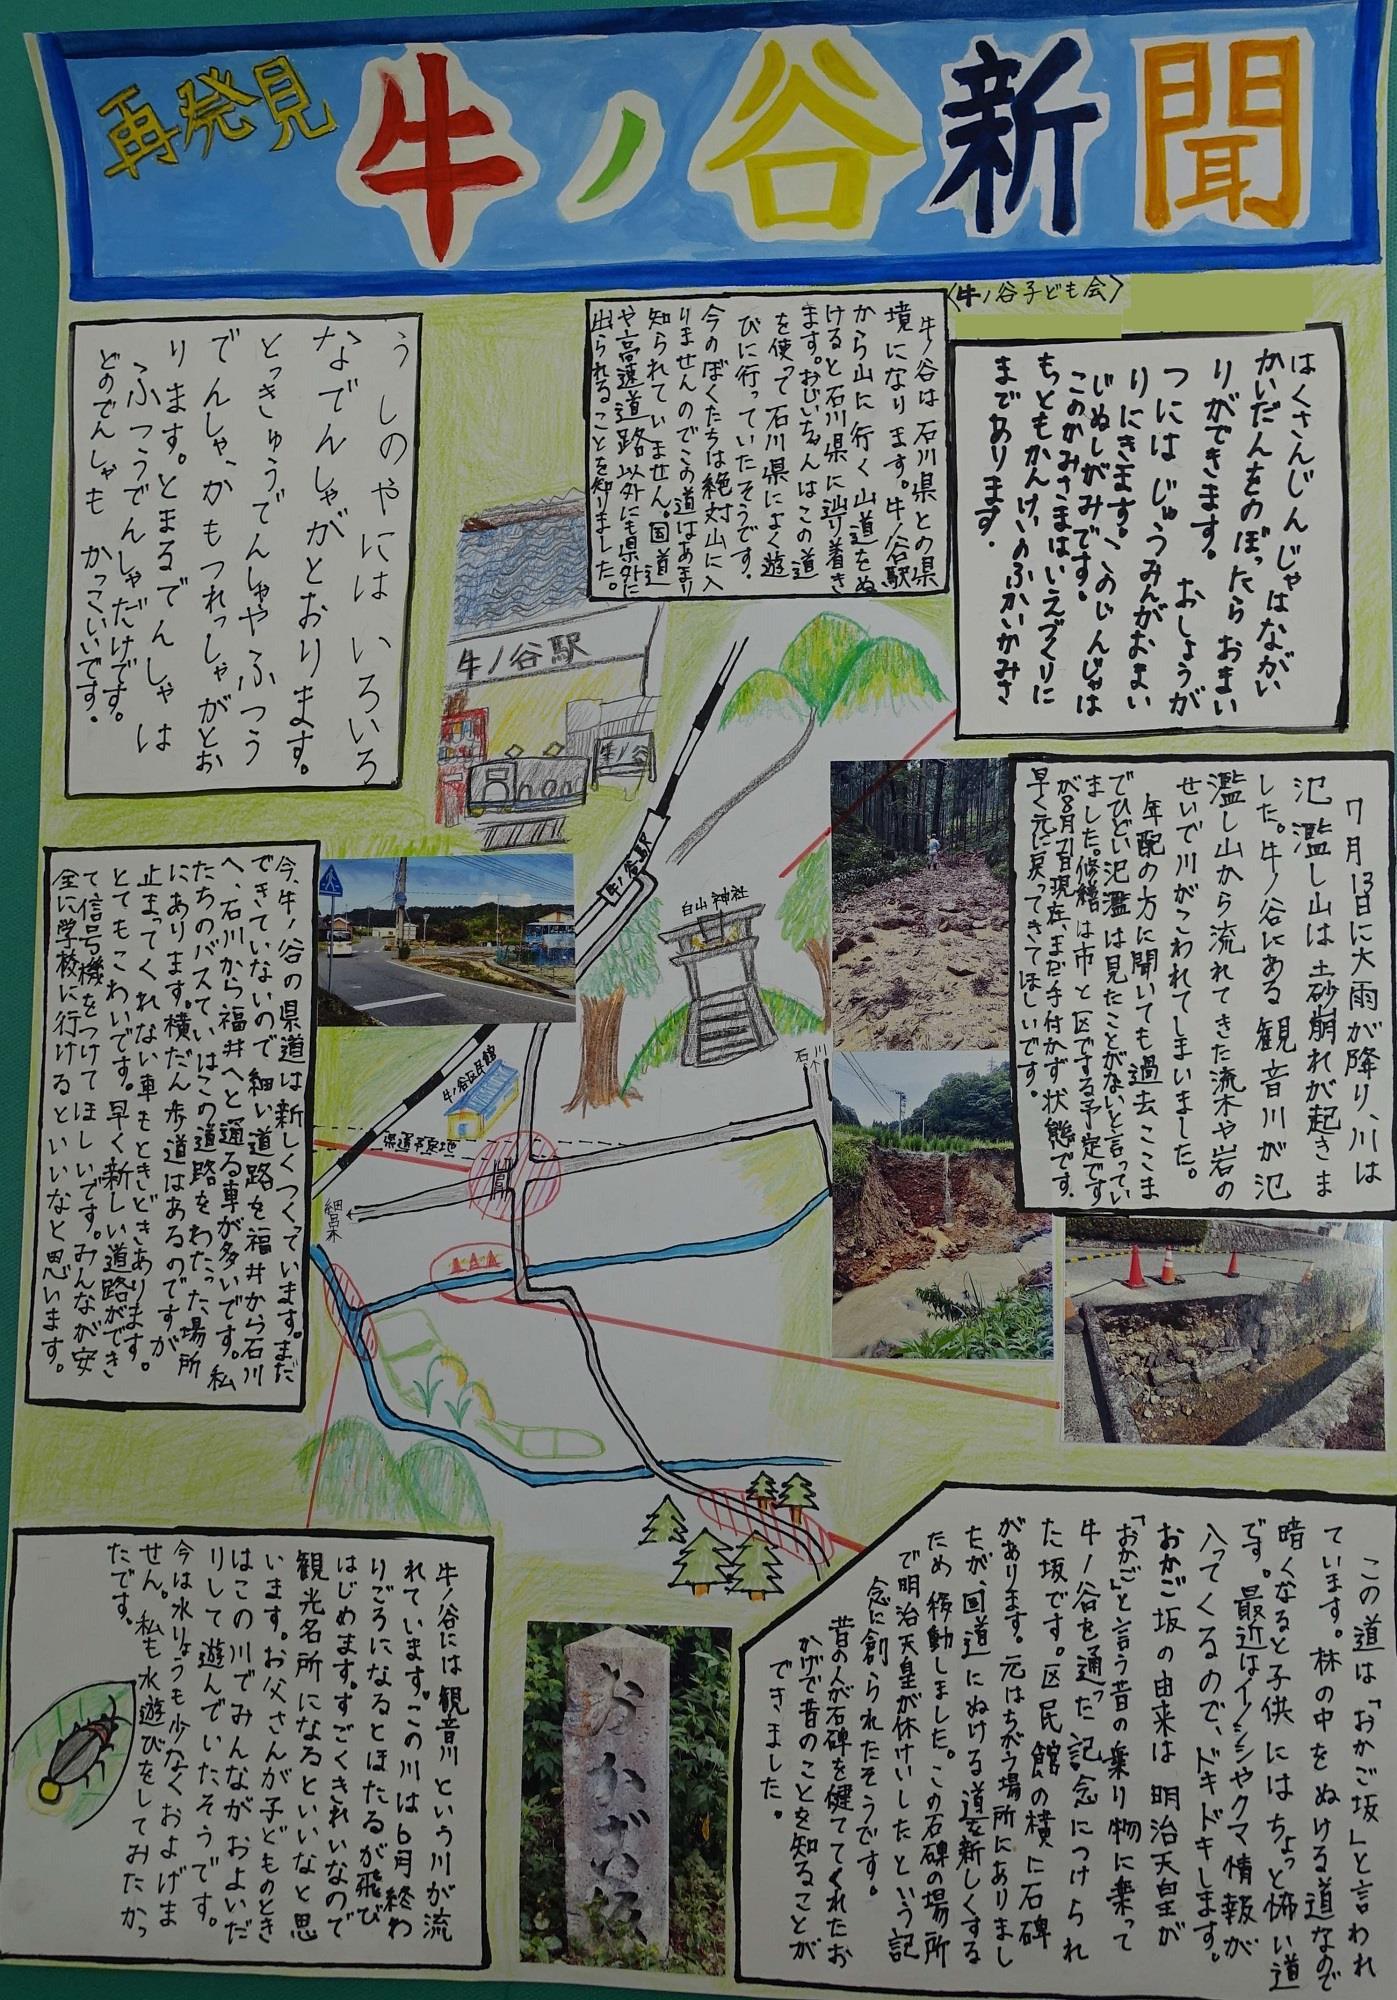 再発見
牛ノ谷新聞
〈牛ノ谷子ども会〉
はくさんじんじゃはながい
かいだんをのぼったらおまい
りができます。 おしょうが
つにはじゅうみんがおまい
りにきます。このじんじゃは
じぬしがみです。
このかみさまはいえづくりに
もっともかんけいのふかいかみさ
まであります。
牛ノ谷は石川県との県
境になります。牛ノ谷駅
から山に行く山道をぬ
けると石川県に辿り着き
ます。おじいちゃんはこの道
を使って石川県によく遊
びに行っていたそうです。
今のぼくたちは絶対山に入
りませんのでこの道はあまり
知られていません。国道
や高速道路以外にも県外に
出られることを知りました。
うしのやには いろいろ
なでんしゃがとおります。
とっきゅうでんしゃやふつう
でんしゃ、かもつれっしゃがとお
ります。とまるでんしゃは
ふつうでんしゃだけです。
どのでんしゃも かっこいいです。
牛ノ谷駅
牛ノ谷
7月13日に大雨が降り、川は
氾濫し山は土砂崩れが起きま
した。牛ノ谷にある観音川が氾
濫し山から流れてきた流木や岩の
せいで川がこわれてしまいました。
年配の方に聞いても過去ここま
でひどい氾濫は見たことがないと言ってい
ました。修繕は市と区でする予定です
が8月21日現在、まだ手付かず状態です。
早く元に戻ってきてほしいです。
今、牛ノ谷の県道は新しくつくっています。まだ
できていないので細い道路を福井から石川
へ、石川から福井へと通る車が多いです。私
たちのバスていはこの道路をわたった場所
にあります。横だん歩道はあるのですが
止まってくれない車もときどきあります。
とてもこわいです。早く新しい道路ができ
て信号機をつけてほしいです。みんなが安
全に学校に行けるといいなと思います。
牛ノ谷駅
白山神社
石川
牛ノ谷区民館
県道予定地
細呂木
この道は「おかご坂」と言われ
ています。林の中をぬける道なので
暗くなると子供にはちょっと怖い道
です。最近はイノシシやクマ情報が
入ってくるので、ドキドキします。
おかご坂の由来は明治天皇が
「おかご」と言う昔の乗り物に乗って
牛ノ谷を通った記念につけられ
た坂です。区民館の横に石碑
があります。元はちがう場所にありまし
たが、国道にぬける道を新しくする
ため移動しました。この石碑の場所
で明治天皇が休けいしたという記
念に創られたそうです。
昔の人が石碑を健ててくれたお
かげで昔のことを知ることが
できました。
牛ノ谷には観音川という川が流
れています。この川は6月終わ
りごろになるとほたるが飛び
はじめます。すごくきれいなので
観光名所になるといいなと思
います。お父さんが子どものとき
はこの川でみんながおよいだ
りして遊んでいたそうです。
今は水りょうも少なくおよげま
せん。私も水遊びをしてみたかっ
たです。
おかご坂